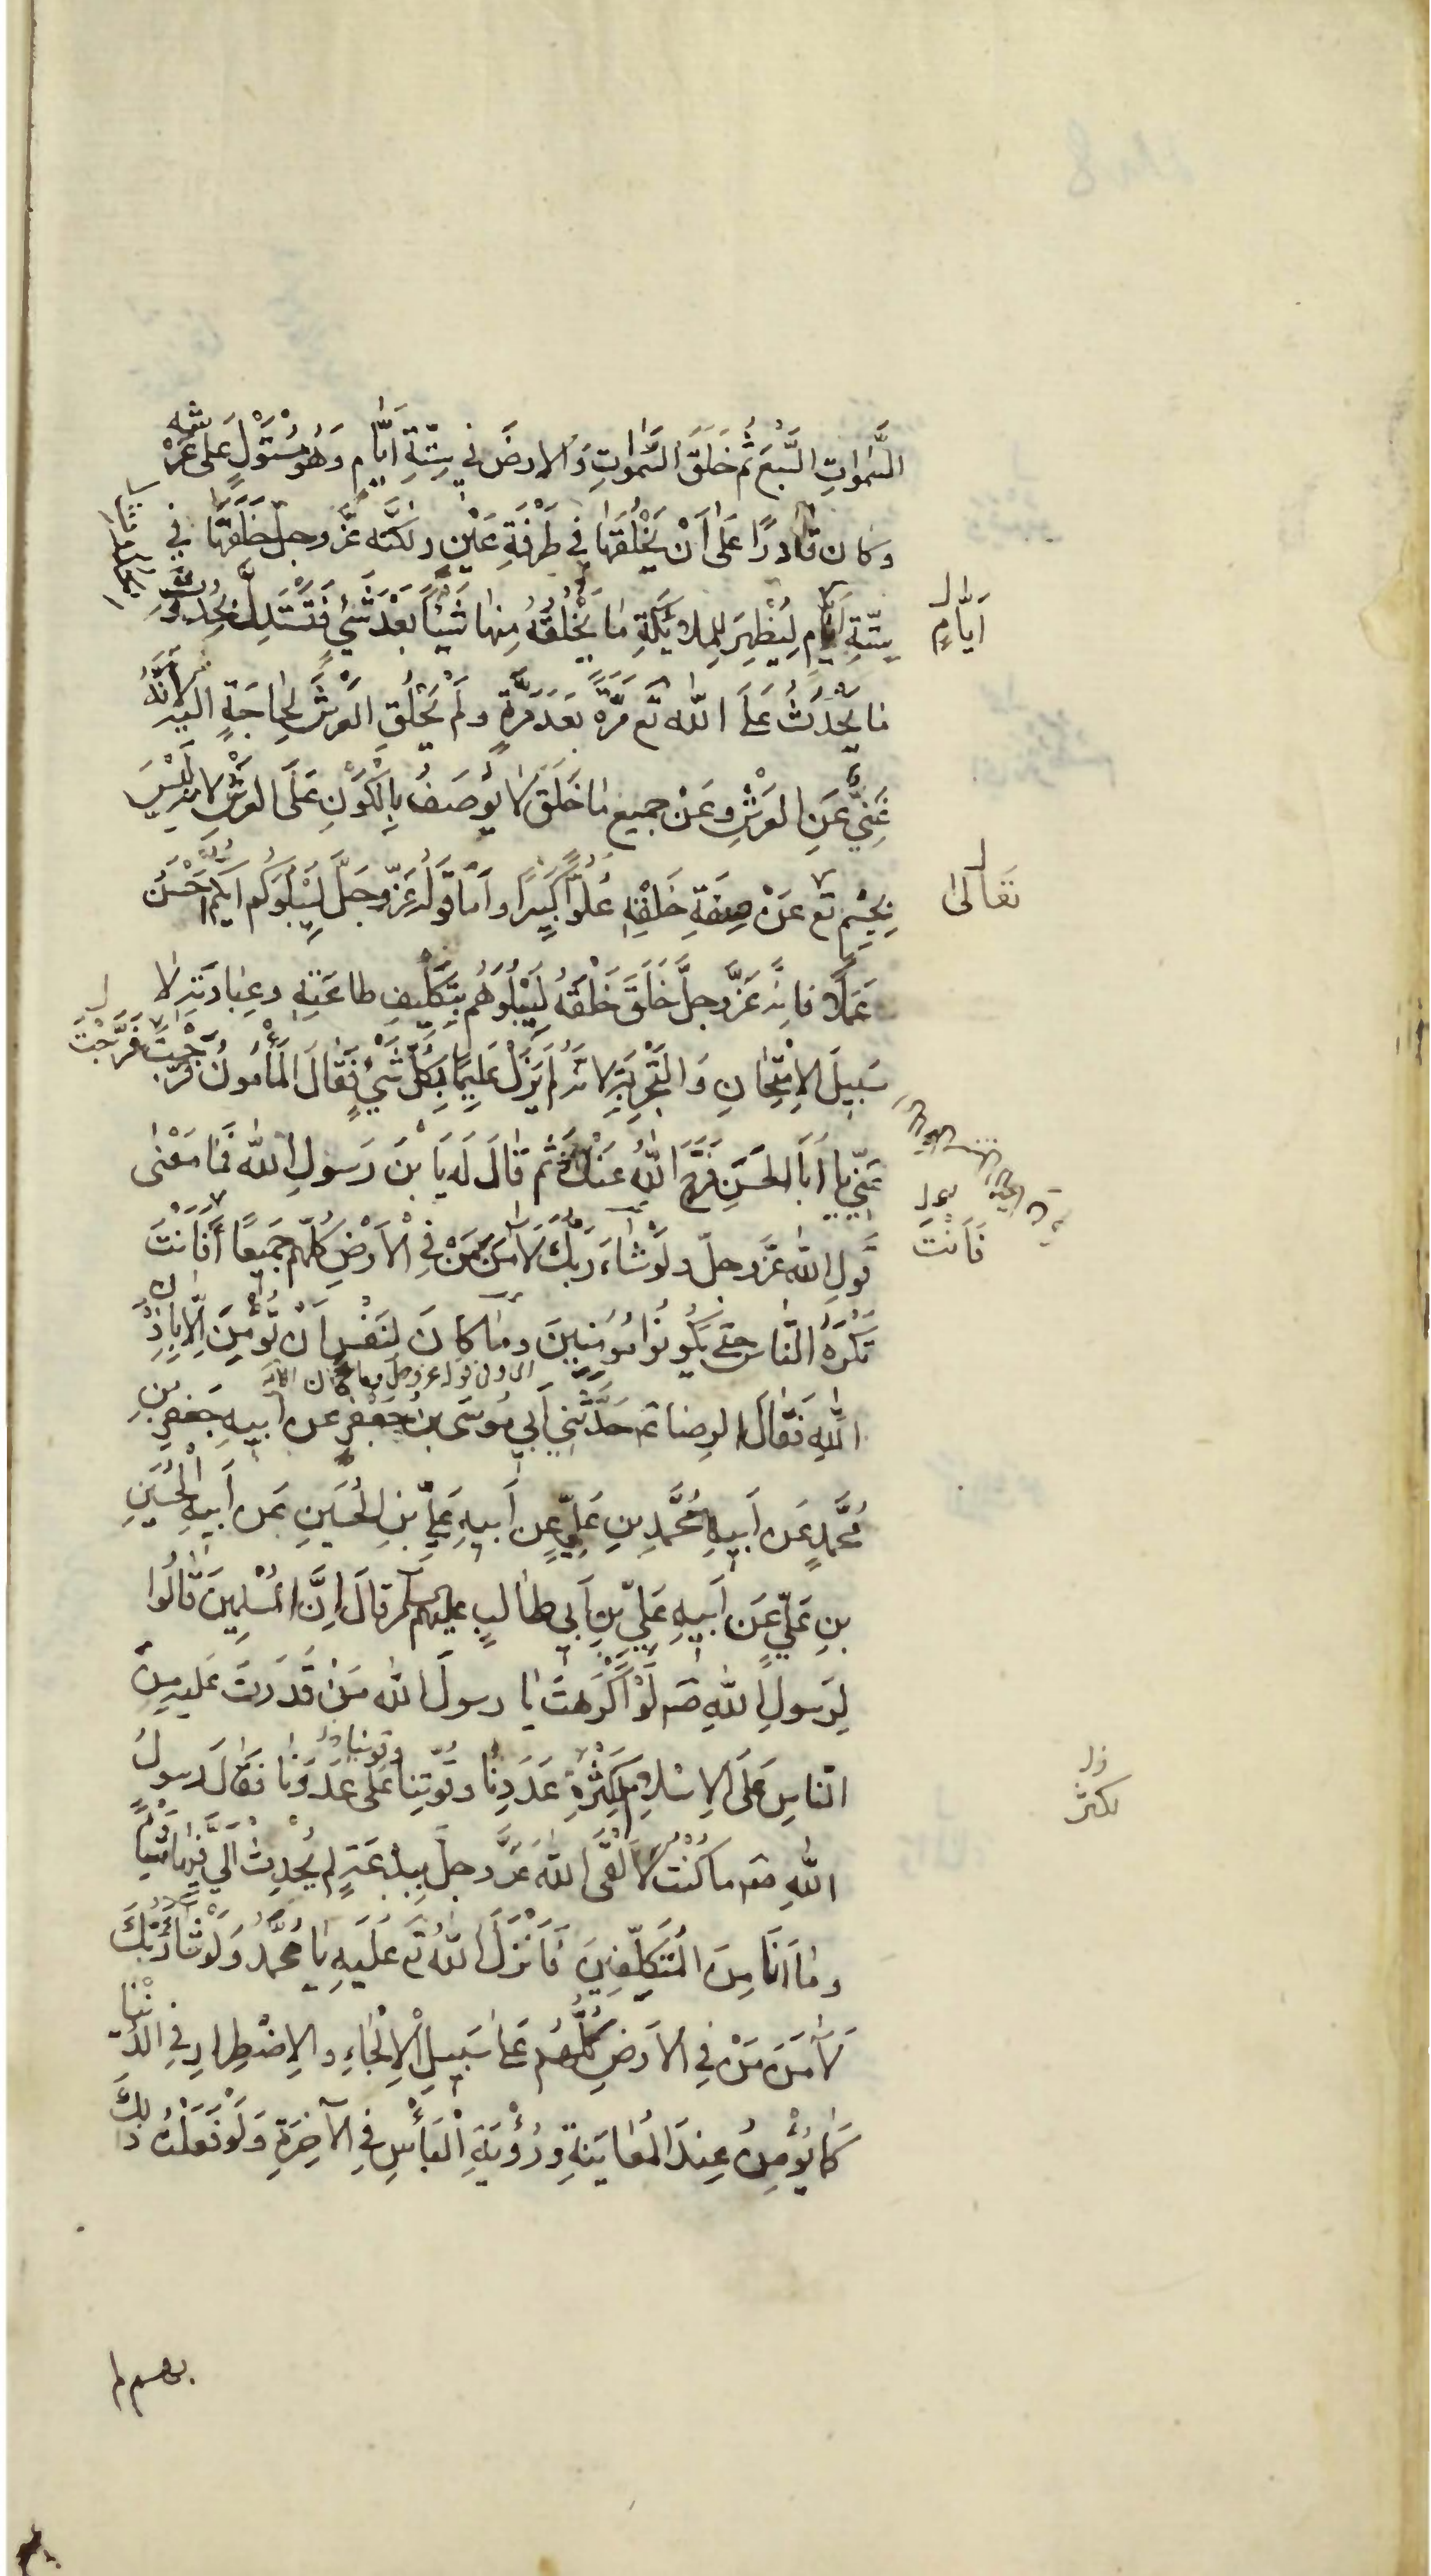 السَّمٰوٰاتِ السَّبْعَ ثُمَّ خَلَقَ السَّمٰوٰاتِ وَالارضَ فِي سِتَّةِ ايَّامٍ وَهُوَ مُسْتَوْلٍ عَلى عَرْشِه
وَكان قٰادرًا عَلىٰ اَنْ يَخْلُقَهٰا فِي طَرْفَةِ عَيْنٍ ولكنَّه عَزَّ وجلّ خَلَقَهٰا في
سِتّةِ ايّام لِيُظْهِرَ لِلمَلائِكَةِ مٰا يَخْلُقُهُ مِنهٰا شَيْئًا بَعْدَ شَيْءٍ فَتَسْتَدِلَّ بِحُدُوثِ
ايّامٍ
مٰا يَحْدُثُ عَلَى اللّٰه تع مَرَّةً بَعدَ مَرَّةٍ ولَمْ يَخْلُقِ العَرْشَ لِحٰاجَةٍ اليه لانَّهُ
غَنِيٌّ عَنِ العَرْشِ وعَنْ جميعِ مٰا خَلَقَ لا يُوصَفُ بِالْكَوْنِ عَلَى العَرْشِ لانه لَيْسَ
بِجِسْمٍ تع عَنْ صِفَةِ خَلْقِهِ عُلُوًّا كَبِيرًا وامّا قَولُه عَزّ وجَلَّ لِيَبْلُوَكُم ايُّكُم احْسَنُ
تَعَالىٰ
عَمَلًا فانه عَزَّ وجلَّ خَلَقَ خَلْقَهُ لِيَبْلُوَهُم بِتَكْلِيفِ طاعَتِهِ وعِبٰادَتِهِ لا
سَبِيلَ الاِمْتِحٰانِ وَالتَّجْرِبَةِ لانه لَم يَزَلْ عَلِيمًا بِكُلِّ شَيْءٍ فَقٰالَ المَأمُونُ فَرَّجْتَ
فَرَّجْتَ
عَنّي يا اَبَا الحَسَنِ فَرَّجَ اللّٰهُ عَنْكَ ثم قٰالَ لَه يَا بْنَ رَسولِ اللّٰه فَمٰا مَعْنٰى
قَولِ اللّٰه عَزّ وجلّ ولَوْ شٰاءَ رَبُّكَ لَآمَنَ مَنْ فِي الْاَرْضِ كُلُّهُم جَمِيعًا أَفَانْتَ
فَاَنْتَ
تُكْرِهُ النّٰاسَ حتى يَكُونُوا مُومِنِينَ ومٰا كانَ لِنَفْسٍ اَنْ تُؤْمِنَ اِلّا بِاِذْنِ
اللّٰهِ فَقٰالَ الرضا ع حَدَّثَنِي اَبِي مُوسَى بنُ جَعْفَرٍ عن ابيهِ جَعْفرِ بنِ
مُحَمَّدٍ عَن اَبيهِ مُحَمَّدِ بنِ عَلِيٍّ عَن اَبيهِ عَلِيِّ بنِ الحُسَينِ عَن اَبيهِ الْحُسَينِ
بنِ عَلِيٍّ عَن اَبيهِ عَلِيِّ بنِ اَبي طٰالبٍ عليهم السلم قالَ اِنَّ المُسْلِمِينَ قٰالُوا
لِرَسولِ اللّٰهِ صَ لَوْ اَكْرَهتَ يٰا رسولَ اللّٰه مَنْ قَدَرتَ عَليه مِنَ
النّاسِ عَلَى الاِسْلامِ لِكَثْرَةِ عَدَدِنٰا وقُوّتِنا عَلى عَدُوِّنٰا فقٰالَ رسولُ
اللّٰهِ ص ما كُنْتُ لاَلْقَى اللّٰهَ عَزَّ وجلّ بِبِدْعَةٍ لم يُحْدِثْ اليَّ فيها شَيْئًا
ومٰا اَنَا مِنَ المُتَكَلِّفِينَ فَاَنْزَلَ اللّٰهُ تع عَلَيهِ يٰا مُحَمَّدُ وَلَوْ شٰاءَ رَبُّكَ
لَآمَنَ مَنْ فِي الاَرضِ كُلُّهُم عَلى سَبِيلِ الْاِلْجٰاءِ والِاضْطِرارِ فِي الدُّنْيٰا
كَمٰا يُؤْمِنُ عِندَ المُعٰايَنَةِ ورُؤْيَةِ الْبَأْسِ فِي الآخِرَةِ وَلَوْ فَعَلْتُ ذٰلِكَ